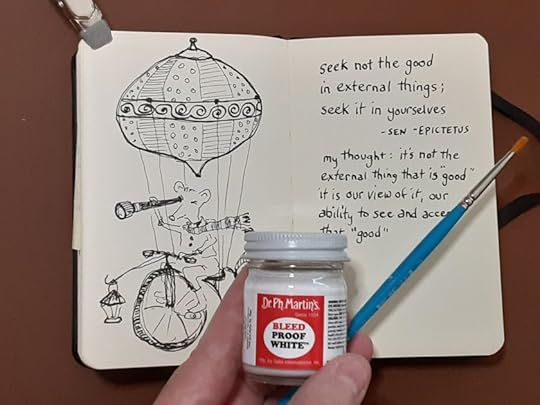 seek not the good
in external things;
seek it in yourselves
-SEN-EPICTETUS
my thought: it's not the
external thing that is "good"
it is our view of it, our
ability to see and
that "good"
Dr. Ph. Martin's
BLEED
PROOF
WHITE™